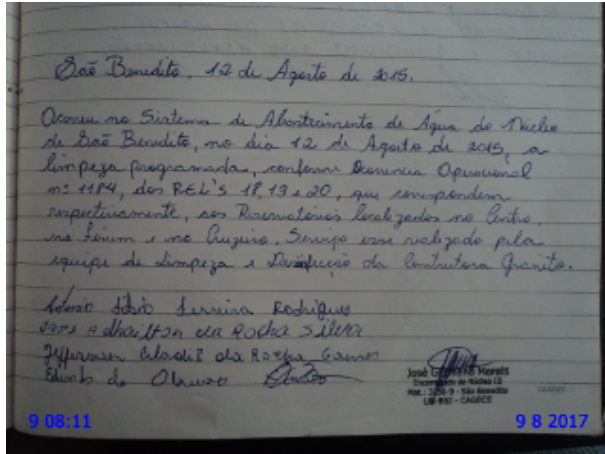 São Benedito, 12 de Agosto de 2015.
Ocorreu no Sistema de Abastecimento de Água do Núcleo
de São Benedito, no dia 12 de Agosto de 2015, a
limpeza programada, conforme Ocorrência Operacional
nº 1184, dos REL'S 18, 19 e 20, que correspondem
respectivamente, aos Reservatórios localizados no Centro,
no Fórum e no Cruzeiro. Serviço esse realizado pela
equipe de Limpeza e Desinfecção da Construtora Granito.
Ferreira Rodrigues
da Rocha Silva
Jefferson da Rocha
José Morais
Encarregado de Núcleo III
São Benedito
CAGECE
9 08:11
9 8 2017